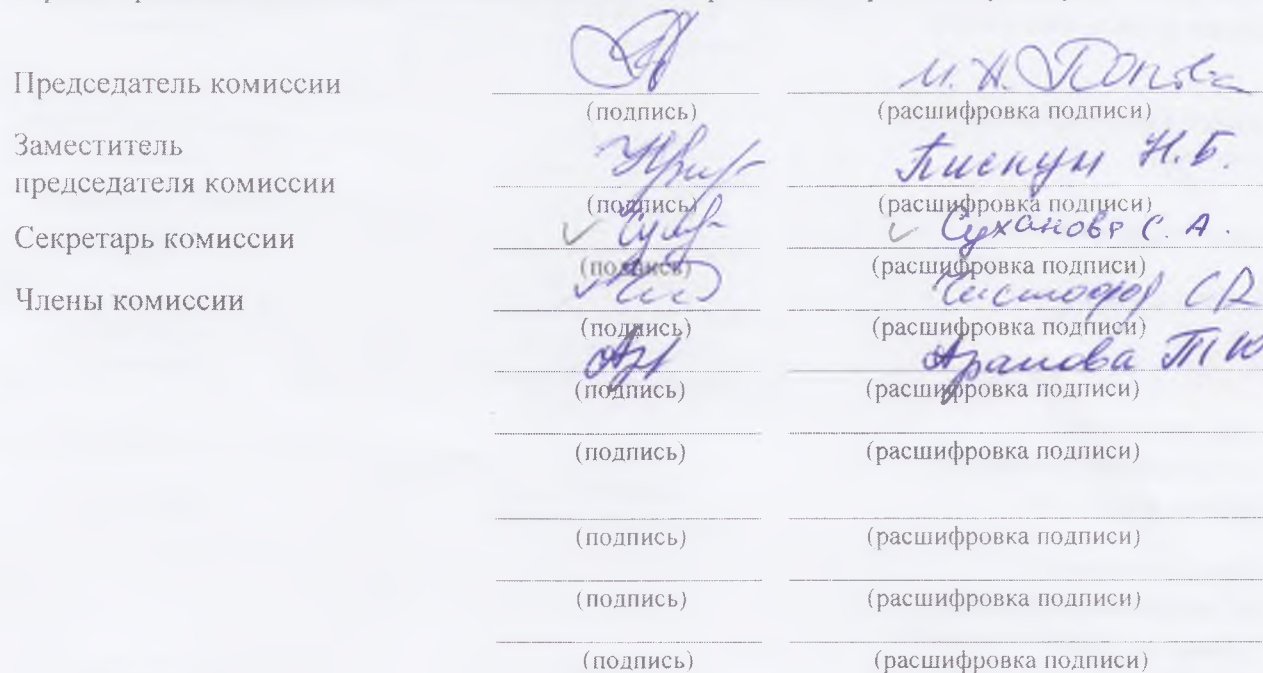 Председатель комиссии
(подпись) (расшифровка подписи)
Заместитель
председателя комиссии Пискун Н.Б.
(подпись) (расшифровка подписи)
Секретарь комиссии Суханова С. А.
(подпись) (расшифровка подписи)
Члены комиссии
(подпись) (расшифровка подписи)
(подпись) (расшифровка подписи)
(подпись) (расшифровка подписи)
(подпись) (расшифровка подписи)
(подпись) (расшифровка подписи)
(подпись) (расшифровка подписи)